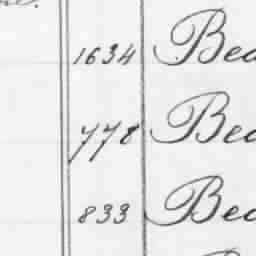 1634 Bea
778 Bea
833 Bea